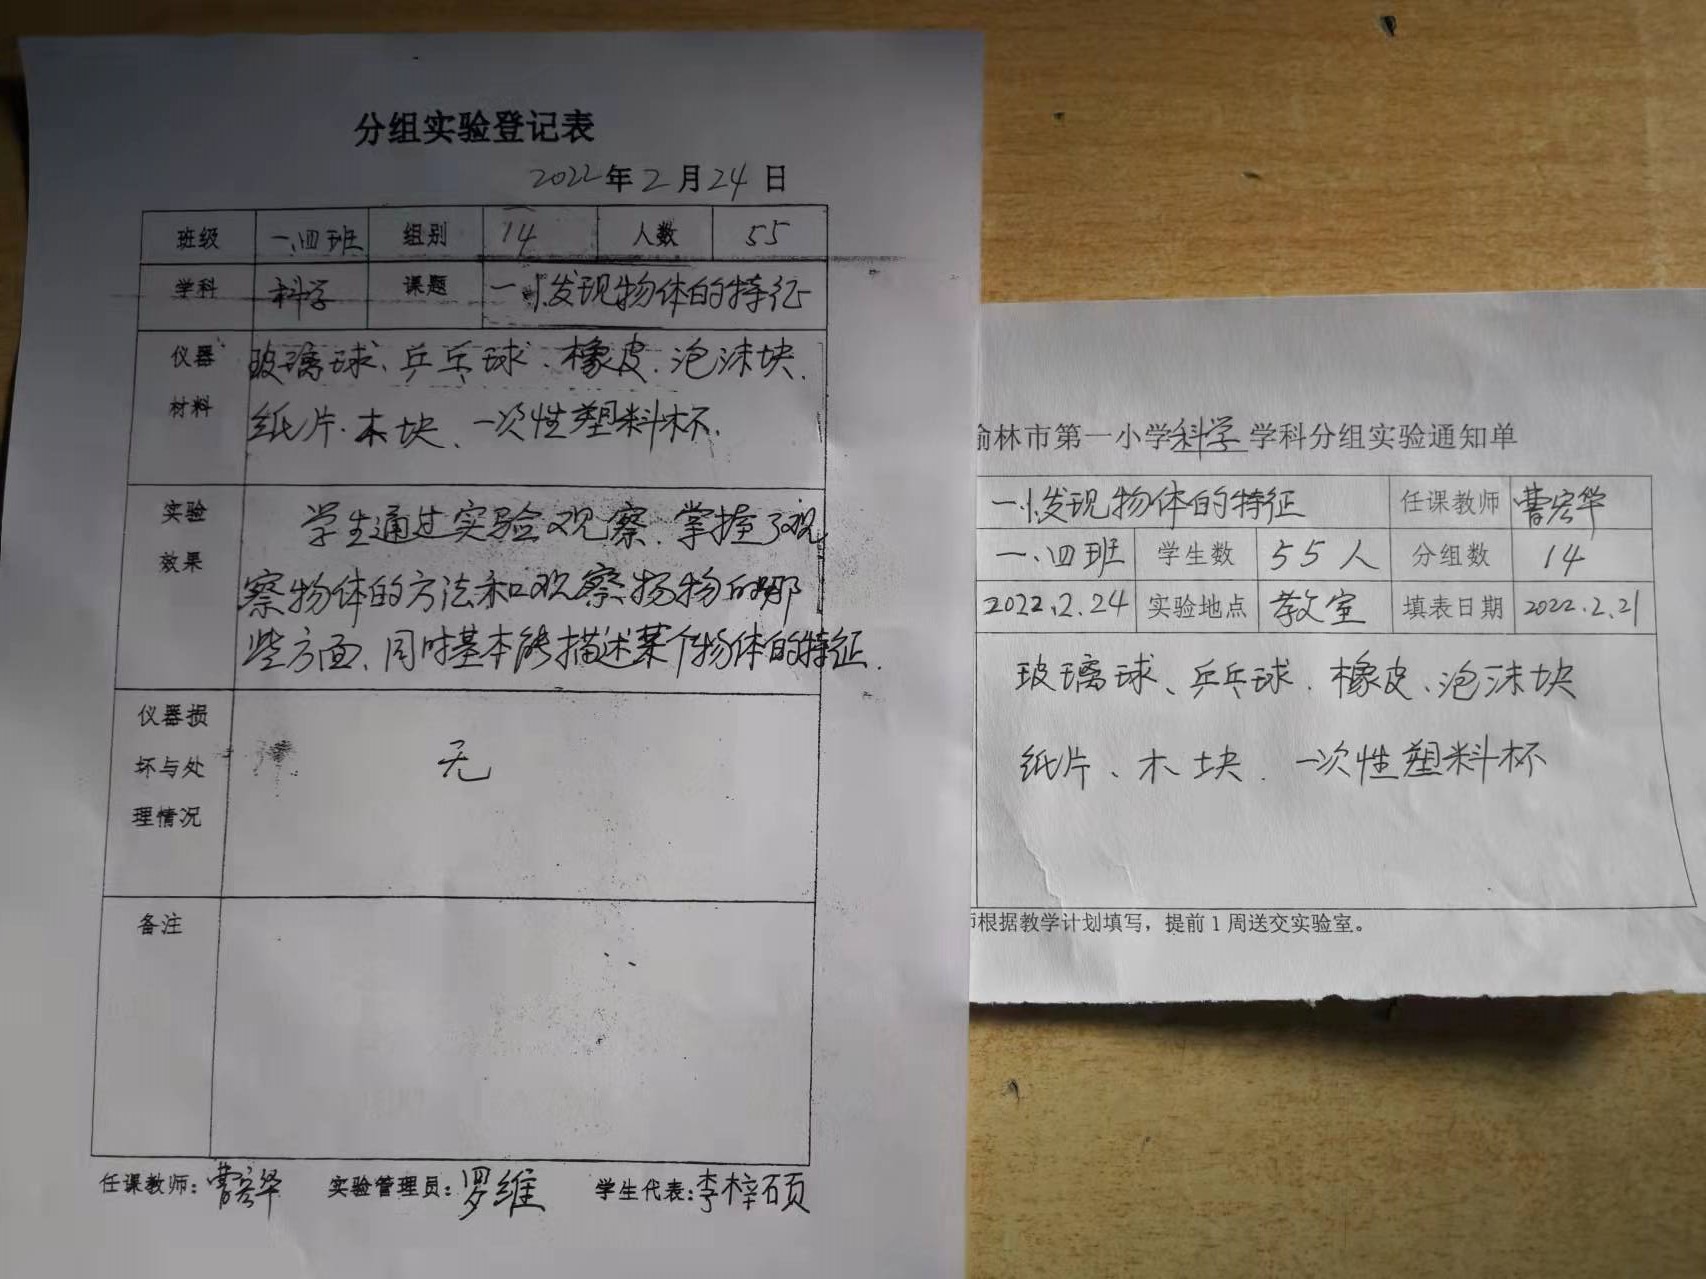 分组实验登记表
2022年2月24日
班级 一.四班 组别 14 人数 55
学科 科学 课题 一.1.发现物体的特征
仪器 玻璃球、乒乓球、橡皮、泡沫块、
材料 纸片、木块、一次性塑料杯.
实验 学生通过实验观察、掌握了观
效果 察物体的方法和观察物的哪
些方面、同时基本能描述某个物体的特征.
仪器损
坏与处 无
理情况
备注
任课教师：曹宏华 实验管理员：罗维 学生代表：李梓硕
榆林市第一小学科学学科分组实验通知单
一.1.发现物体的特征 任课教师 曹宏华
一.四班 学生数 55人 分组数 14
2022.2.24 实验地点 教室 填表日期 2022.2.21
玻璃球、乒乓球、橡皮、泡沫块
纸片、木块、一次性塑料杯
师根据教学计划填写，提前1周送交实验室。